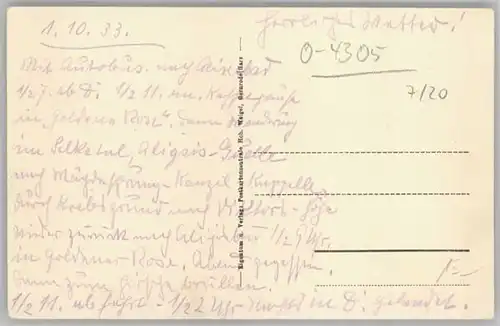 1.10.33.
Herrliches Wetter!
0-4305
7/20
Mit Autobus nach Alexisbad
1/27. ab D. 1/2 11. an. Kaffeepause
in "goldene Rose". Dann Wanderung
im Selketal, Alexis-
nach Mägdesprung-Kanzel
durch Krebsgrund nach Viktors-Höhe
wieder zurück nach Alexisbad 1/2 9 Uhr.
in goldener Rose. Abend gegessen.
Dann zum
1/2 11. ab fahrt - 1/2 2 Uhr nachts in D. gelandet.
Eigentum u. Verlag: Postkartenzentrale Hch. Weigel, Gernrode-Harz